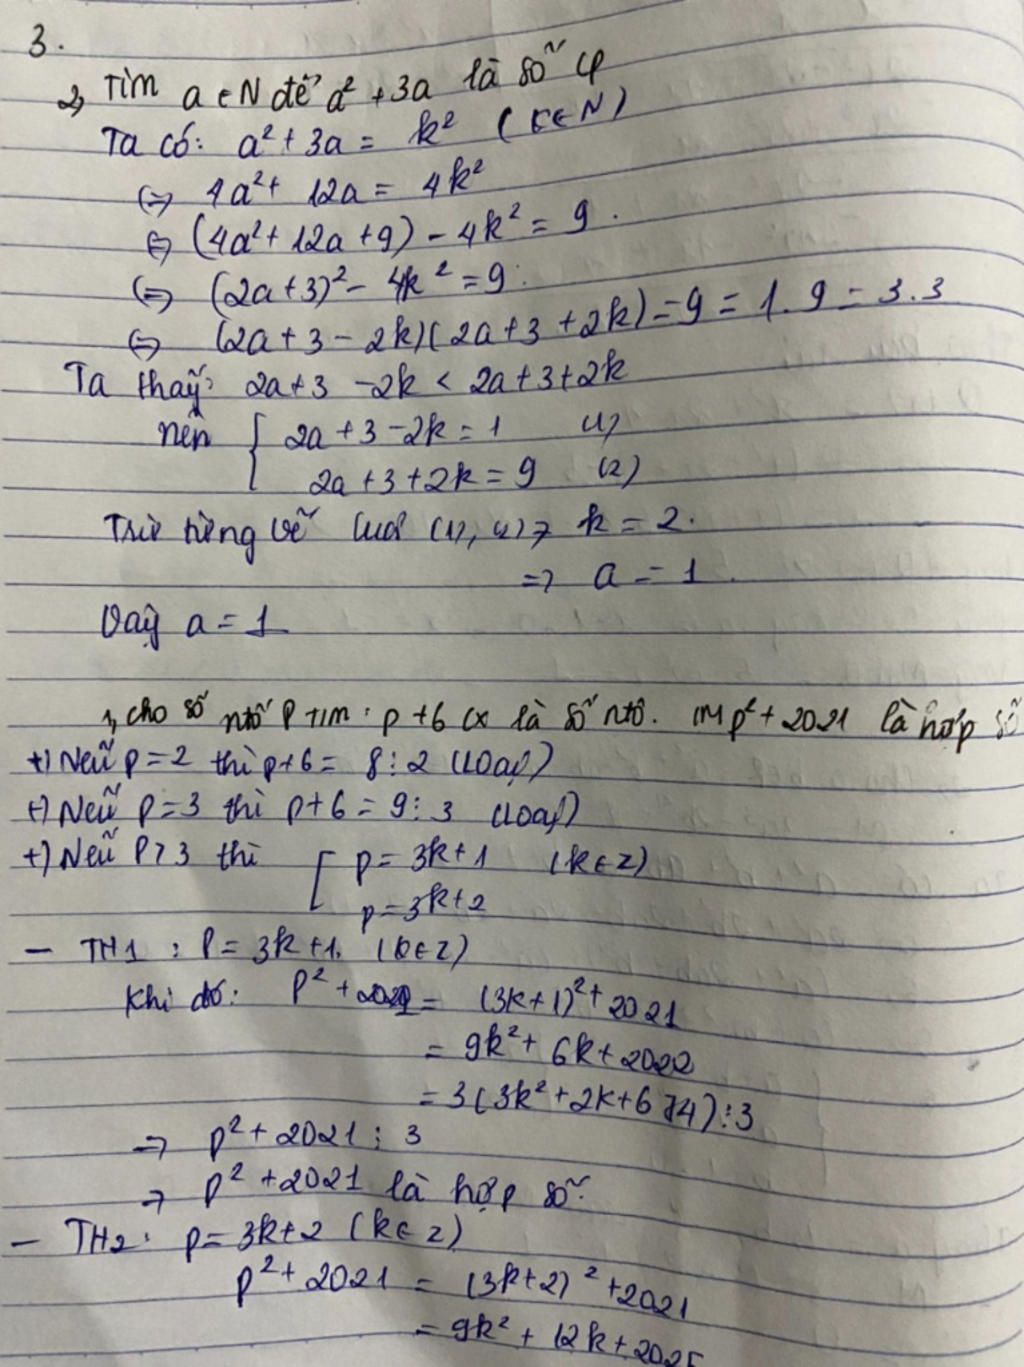 3.
2, Tìm a ∈ N để a² + 3a là số cp
Ta có: a² + 3a = k² (k∈N)
(=) 4a² + 12a = 4k²
(=) (4a² + 12a + 9) - 4k² = 9.
(=) (2a+3)² - 4k² = 9.
(=) (2a+3-2k)(2a+3+2k) = 9 = 1.9 = 3.3
Ta thấy: 2a+3-2k < 2a+3+2k
nên { 2a+3-2k = 1 (1)
2a+3+2k = 9 (2)
Trừ từng vế (1), (2) => k = 2.
=> a = 1.
Vậy a = 1
1, cho số ntố P tm: p+6 cx là số ntố. CM p² + 2021 là hợp số
+) Nếu p=2 thì p+6 = 8 ⋮ 2 (Loại)
+) Nếu p=3 thì p+6 = 9 ⋮ 3 (Loại)
+) Nếu P>3 thì [ p = 3k+1 (k∈Z)
p = 3k+2
- TH1: P = 3k+1. (k∈Z)
Khi đó: p² + 2021 = (3k+1)² + 2021
= 9k² + 6k + 2022
= 3(3k² + 2k + 674) ⋮ 3
=> p² + 2021 ⋮ 3
=> p² + 2021 là hợp số.
- TH2: p = 3k+2 (k∈Z)
p² + 2021 = (3k+2)² + 2021
= 9k² + 12k + 2025